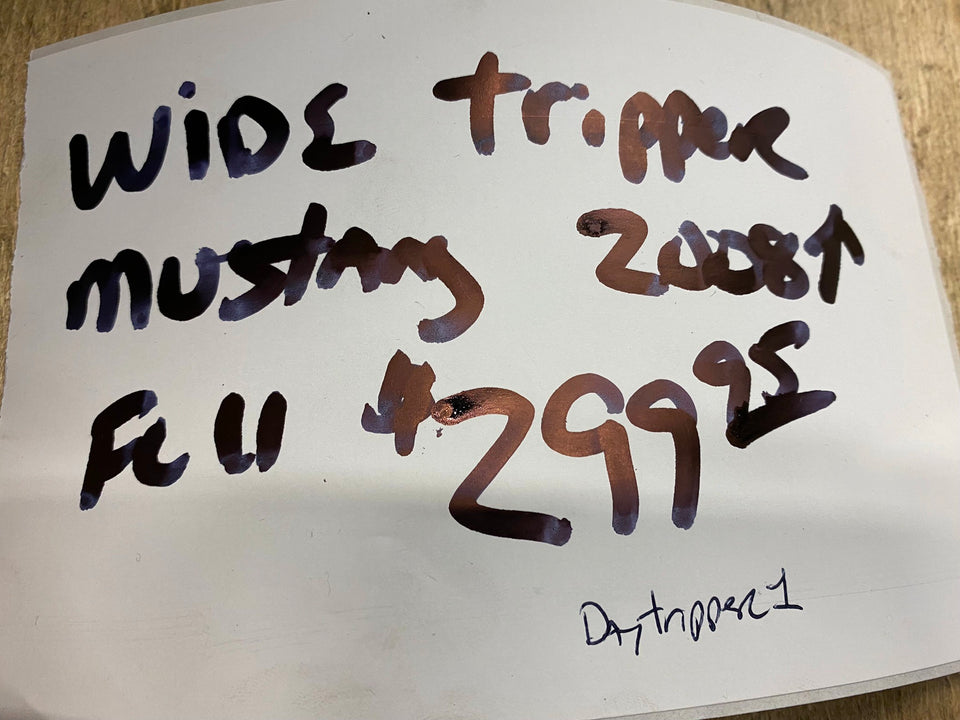 WiDE tripper
mustang 2008↑
Full $299 95
Daytripper1